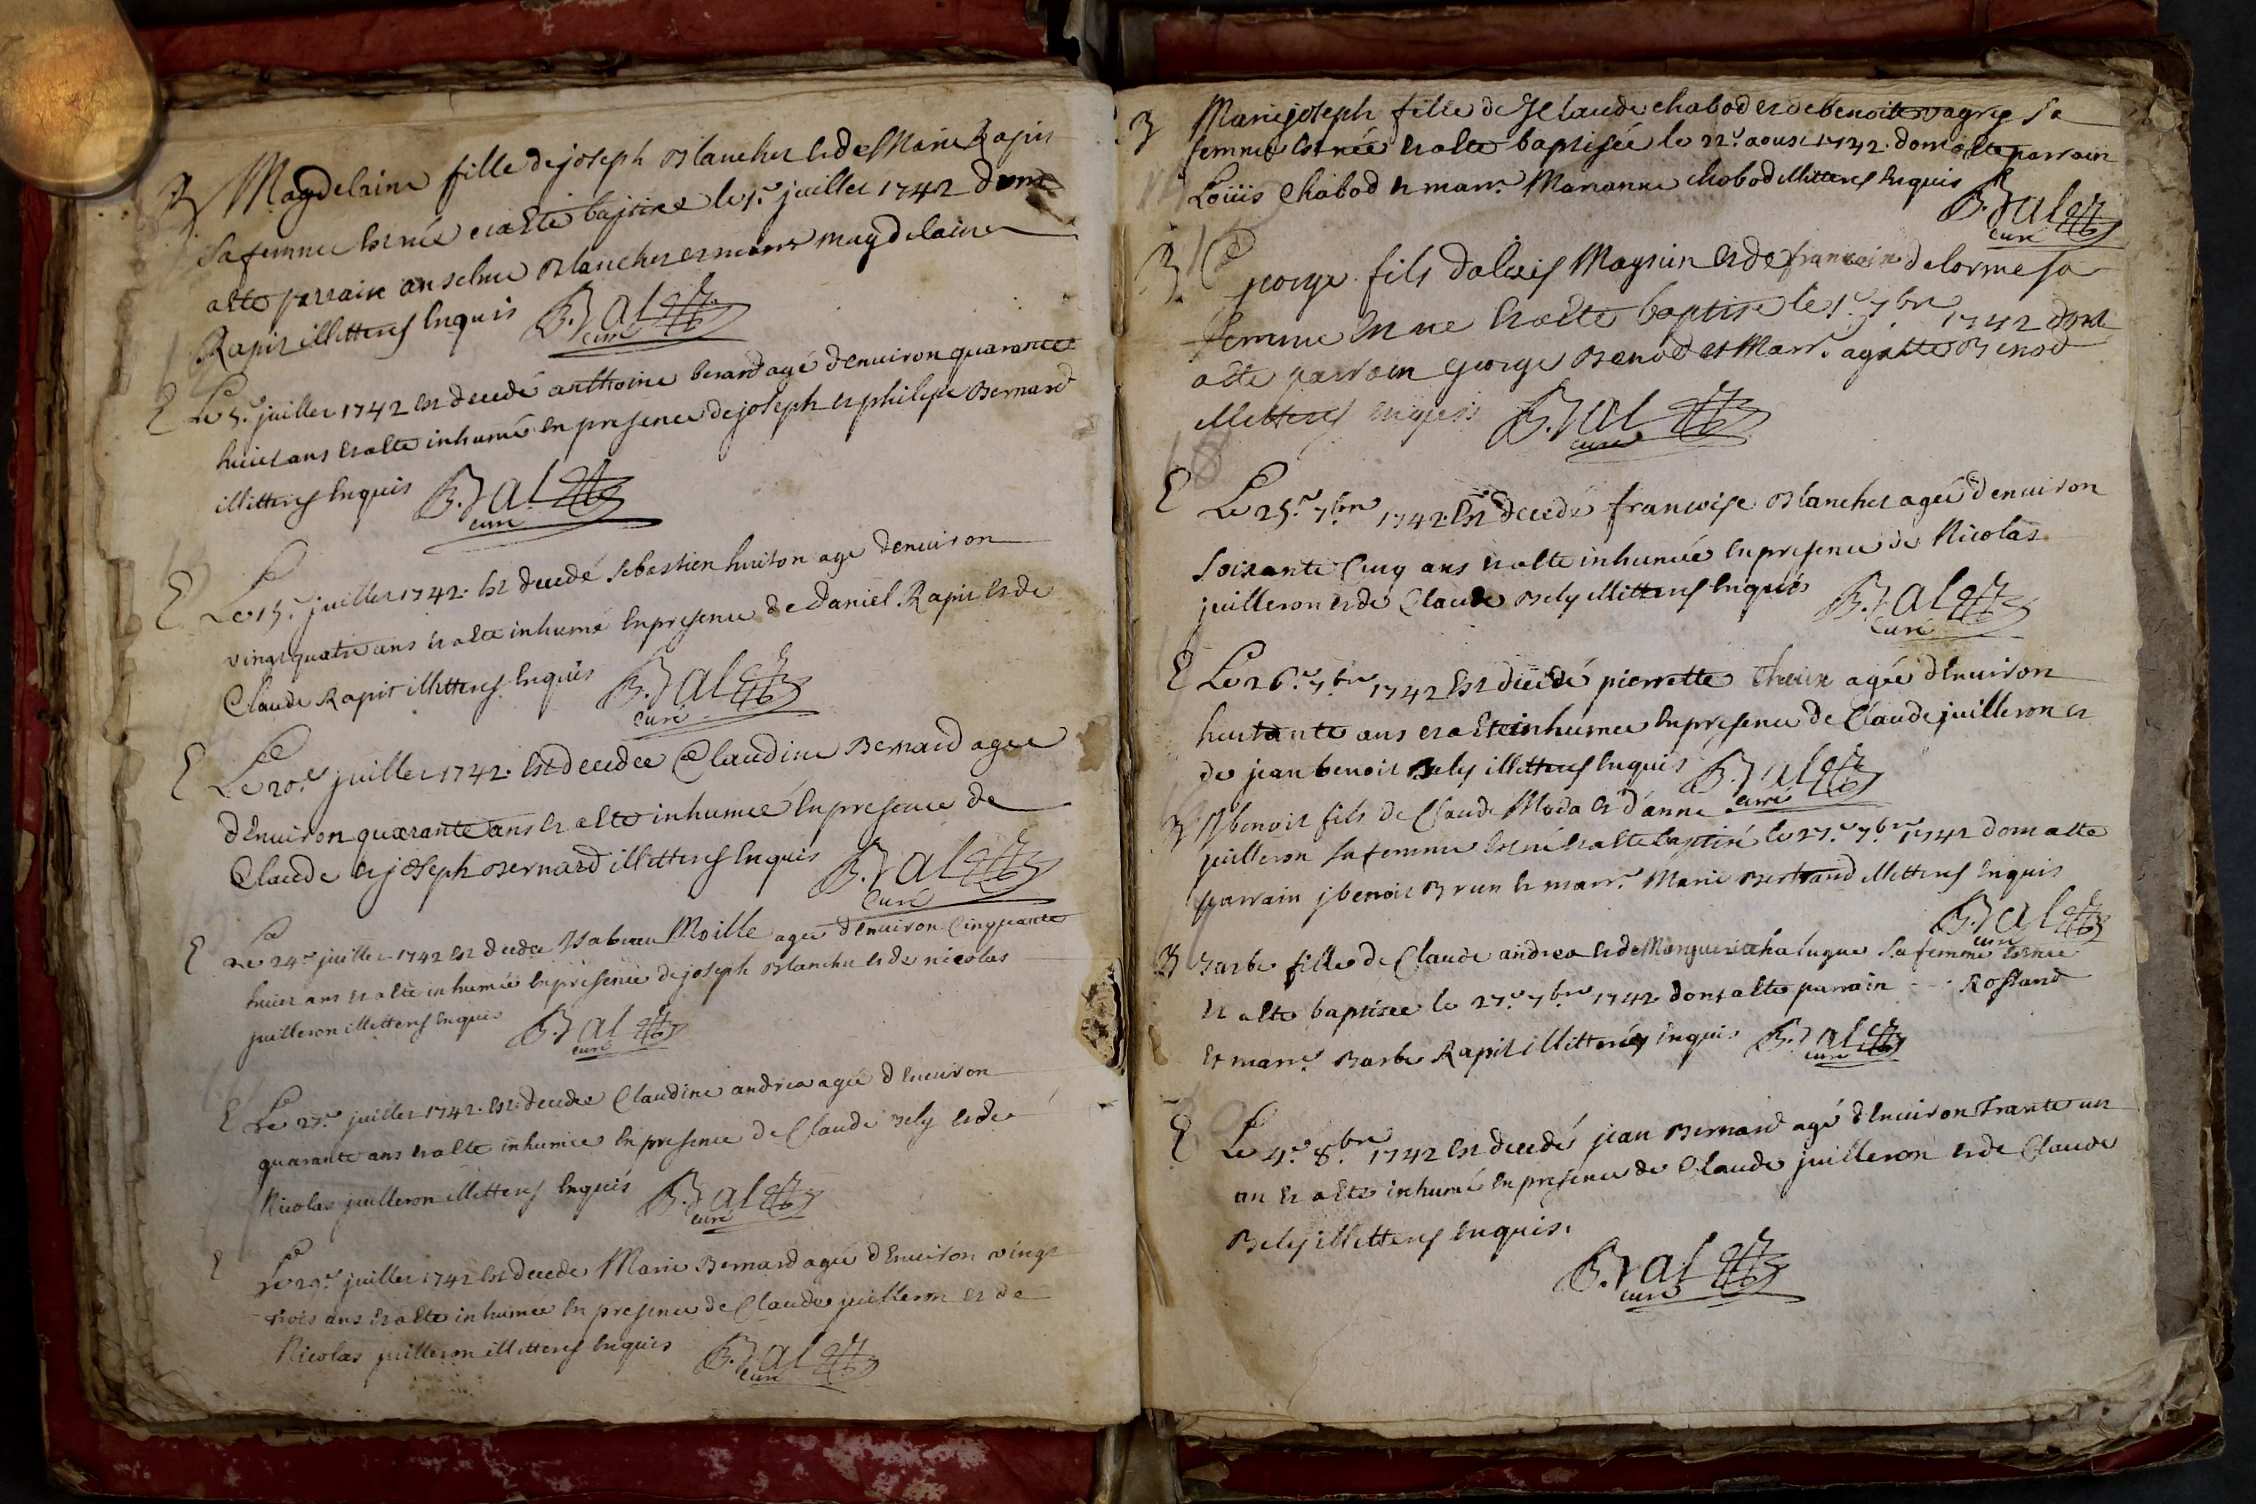 B Magdelaine fille de joseph Blanchet et de Marie Rapit
sa femme est née et a esté baptisée le 1.er juillet 1742 dont
a esté parrain anselme Blanchet et marr.e magdelaine
Rapit illitterés enquis B. Jal
curé
E Le 5.e juillet 1742 est decedé anthoine berard agé d'environ quarante
huict ans et a esté inhumé en presence de joseph et philipe Bernard
illitterés enquis B. Jal
curé
E Le 15.e juillet 1742. est decedé sebastien agé d'environ
vingt quatre ans et a esté inhumé en presence de Daniel Rapit et de
Claude Rapit illitterés enquis B. Jal
curé
E Le 20.e juillet 1742. est decedée Claudine Bernard agée
d'Environ quarante ans et a esté inhumeé En presence de
Claude et joseph Bernard illitterés Enquis B. Jal
Curé
E Le 24.e juillet 1742 est decedée Isabeau Moille agée d'environ cinquante
huict ans et a esté inhumée en presence de joseph Blanchet et de nicolas
juilleron illitterés enquis B. Jal
curé
E Le 27.e juillet 1742. est decedée Claudine andrea agée d'Environ
quarante ans et a esté inhumée en presence de Claude Bely et de
Nicolas juilleron illitterés enquis B. Jal
curé
E Le 29.e juillet 1742 est decedée Marie Bernard agée d'Environ vingt
trois ans et a esté inhumée en presence de Claude juilleron et de
Nicolas juilleron illitterés enquis B. Jal
curé
B Marie joseph fille de Claude chabod et de benoite sa
femme est née et a esté baptisée le 22.e aoust 1742. dont a esté parrain
Loüis Chabod et marr.e Marianne chabod illitterés enquis B. Jal
curé
B George fils d'alexis Magnin et de francoise delorme sa
femme est né et a esté baptisé le 1.er 7.bre 1742 dont
a esté parrain george Benod et Marr.e agatte Benod
illitterés enquis B. Jal
curé
E Le 25.e 7.bre 1742. est decedé francoise Blanchet agée d'environ
soixante cinq ans et a esté inhumée en presence de Nicolas
juilleron et de Claude Bely illitterés enquis B. Jal
curé
E Le 26.e 7.bre 1742 est decedé pierrette agée d'Environ
huitante ans et a esté inhumée en presence de Claude juilleron et
de jean benoit Bely illitterés enquis B. Jal
curé
B benoit fils de Claude Moda et d'anne
juilleron sa femme est né et a esté baptisé le 27.e 7.bre 1742 dont a esté
parrain benoit Brun et marr.e Marie Bertrand illitterés enquis
B. Jal
curé
B Barbe fille de Claude andrea et de Marguerite sa femme est née
et a esté baptisée le 27.e 7.bre 1742 dont a esté parrain - - . Rossand
et marr.e Barbe Rapit illitterés enquis B. Jal
curé
E Le 4.e 8.bre 1742 est decedé jean Bernard agé d'Environ trante un
an et a esté inhumé en presence de Claude juilleron et de Claude
Bely illitterés enquis.
B. Jal
curé